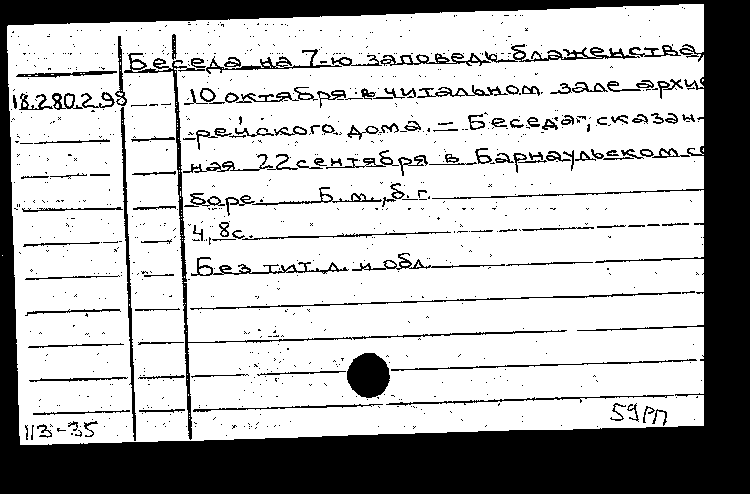 Беседа на 7-ю заповедь блаженства,
18.280.2.98 10 октября в читальном зале архие
рейского дома. – Беседа, сказан-
ная 22 сентября в Барнаульском со
боре. Б.м., б.г.
4,8с.
Без тит.л. и обл.
113-35 59РП